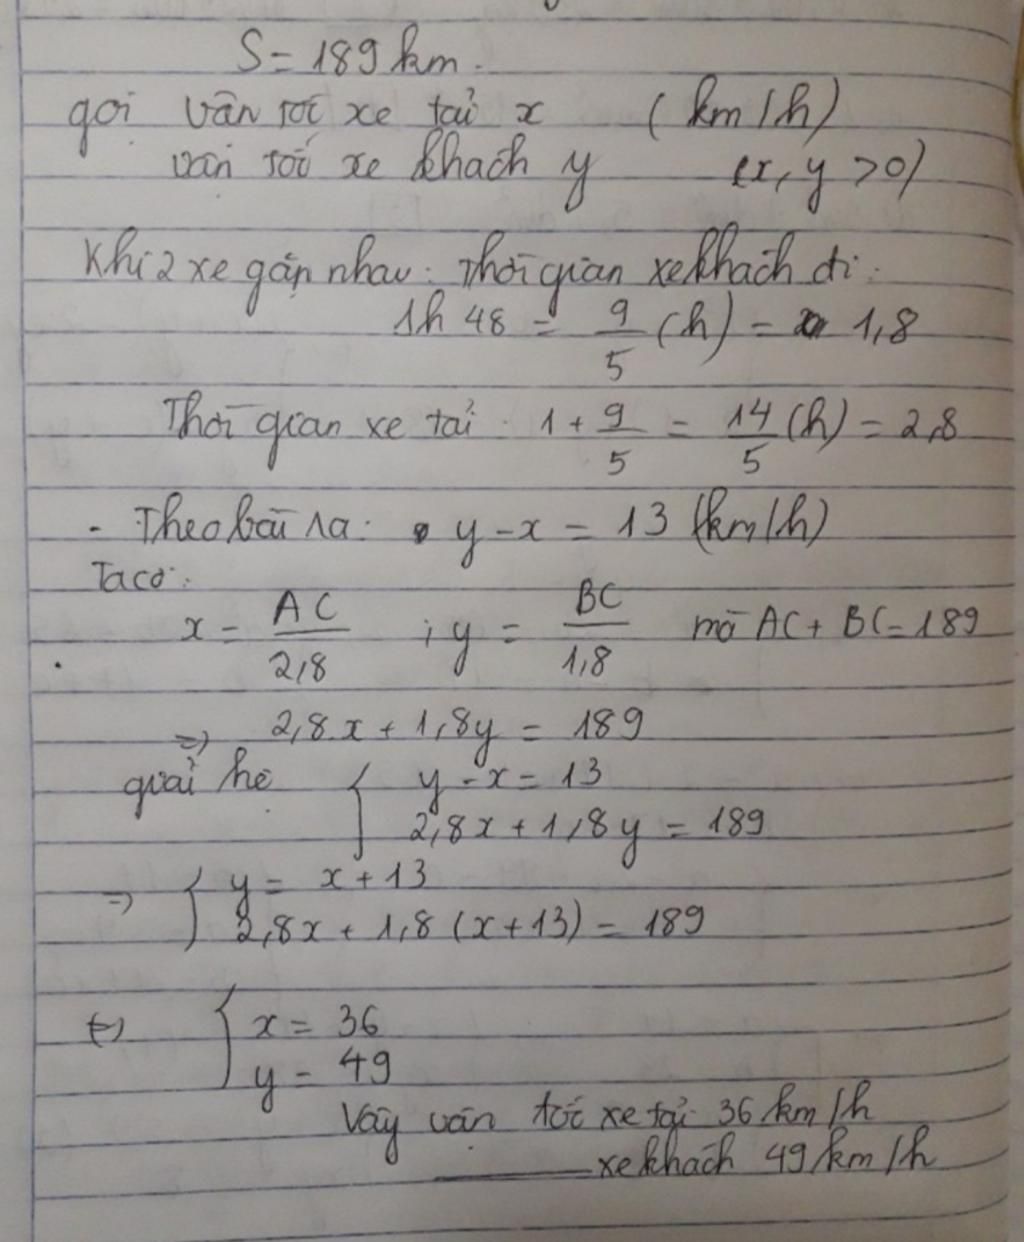 S = 189 km.
gọi vận tốc xe tải x (km/h)
vận tốc xe khách y (x, y > 0)
Khi 2 xe gặp nhau: Thời gian xe khách đi:
1h 48 = 9/5 (h) = 1,8
Thời gian xe tải: 1 + 9/5 = 14/5 (h) = 2,8
- Theo bài ra: y - x = 13 (km/h)
Ta có:
x = AC/2,8 ; y = BC/1,8 mà AC + BC = 189
=> 2,8x + 1,8y = 189
giải hệ { y - x = 13
2,8x + 1,8y = 189
=> { y = x + 13
2,8x + 1,8 (x + 13) = 189
<=> { x = 36
y = 49
Vậy vận tốc xe tải 36 km/h
xe khách 49 km/h